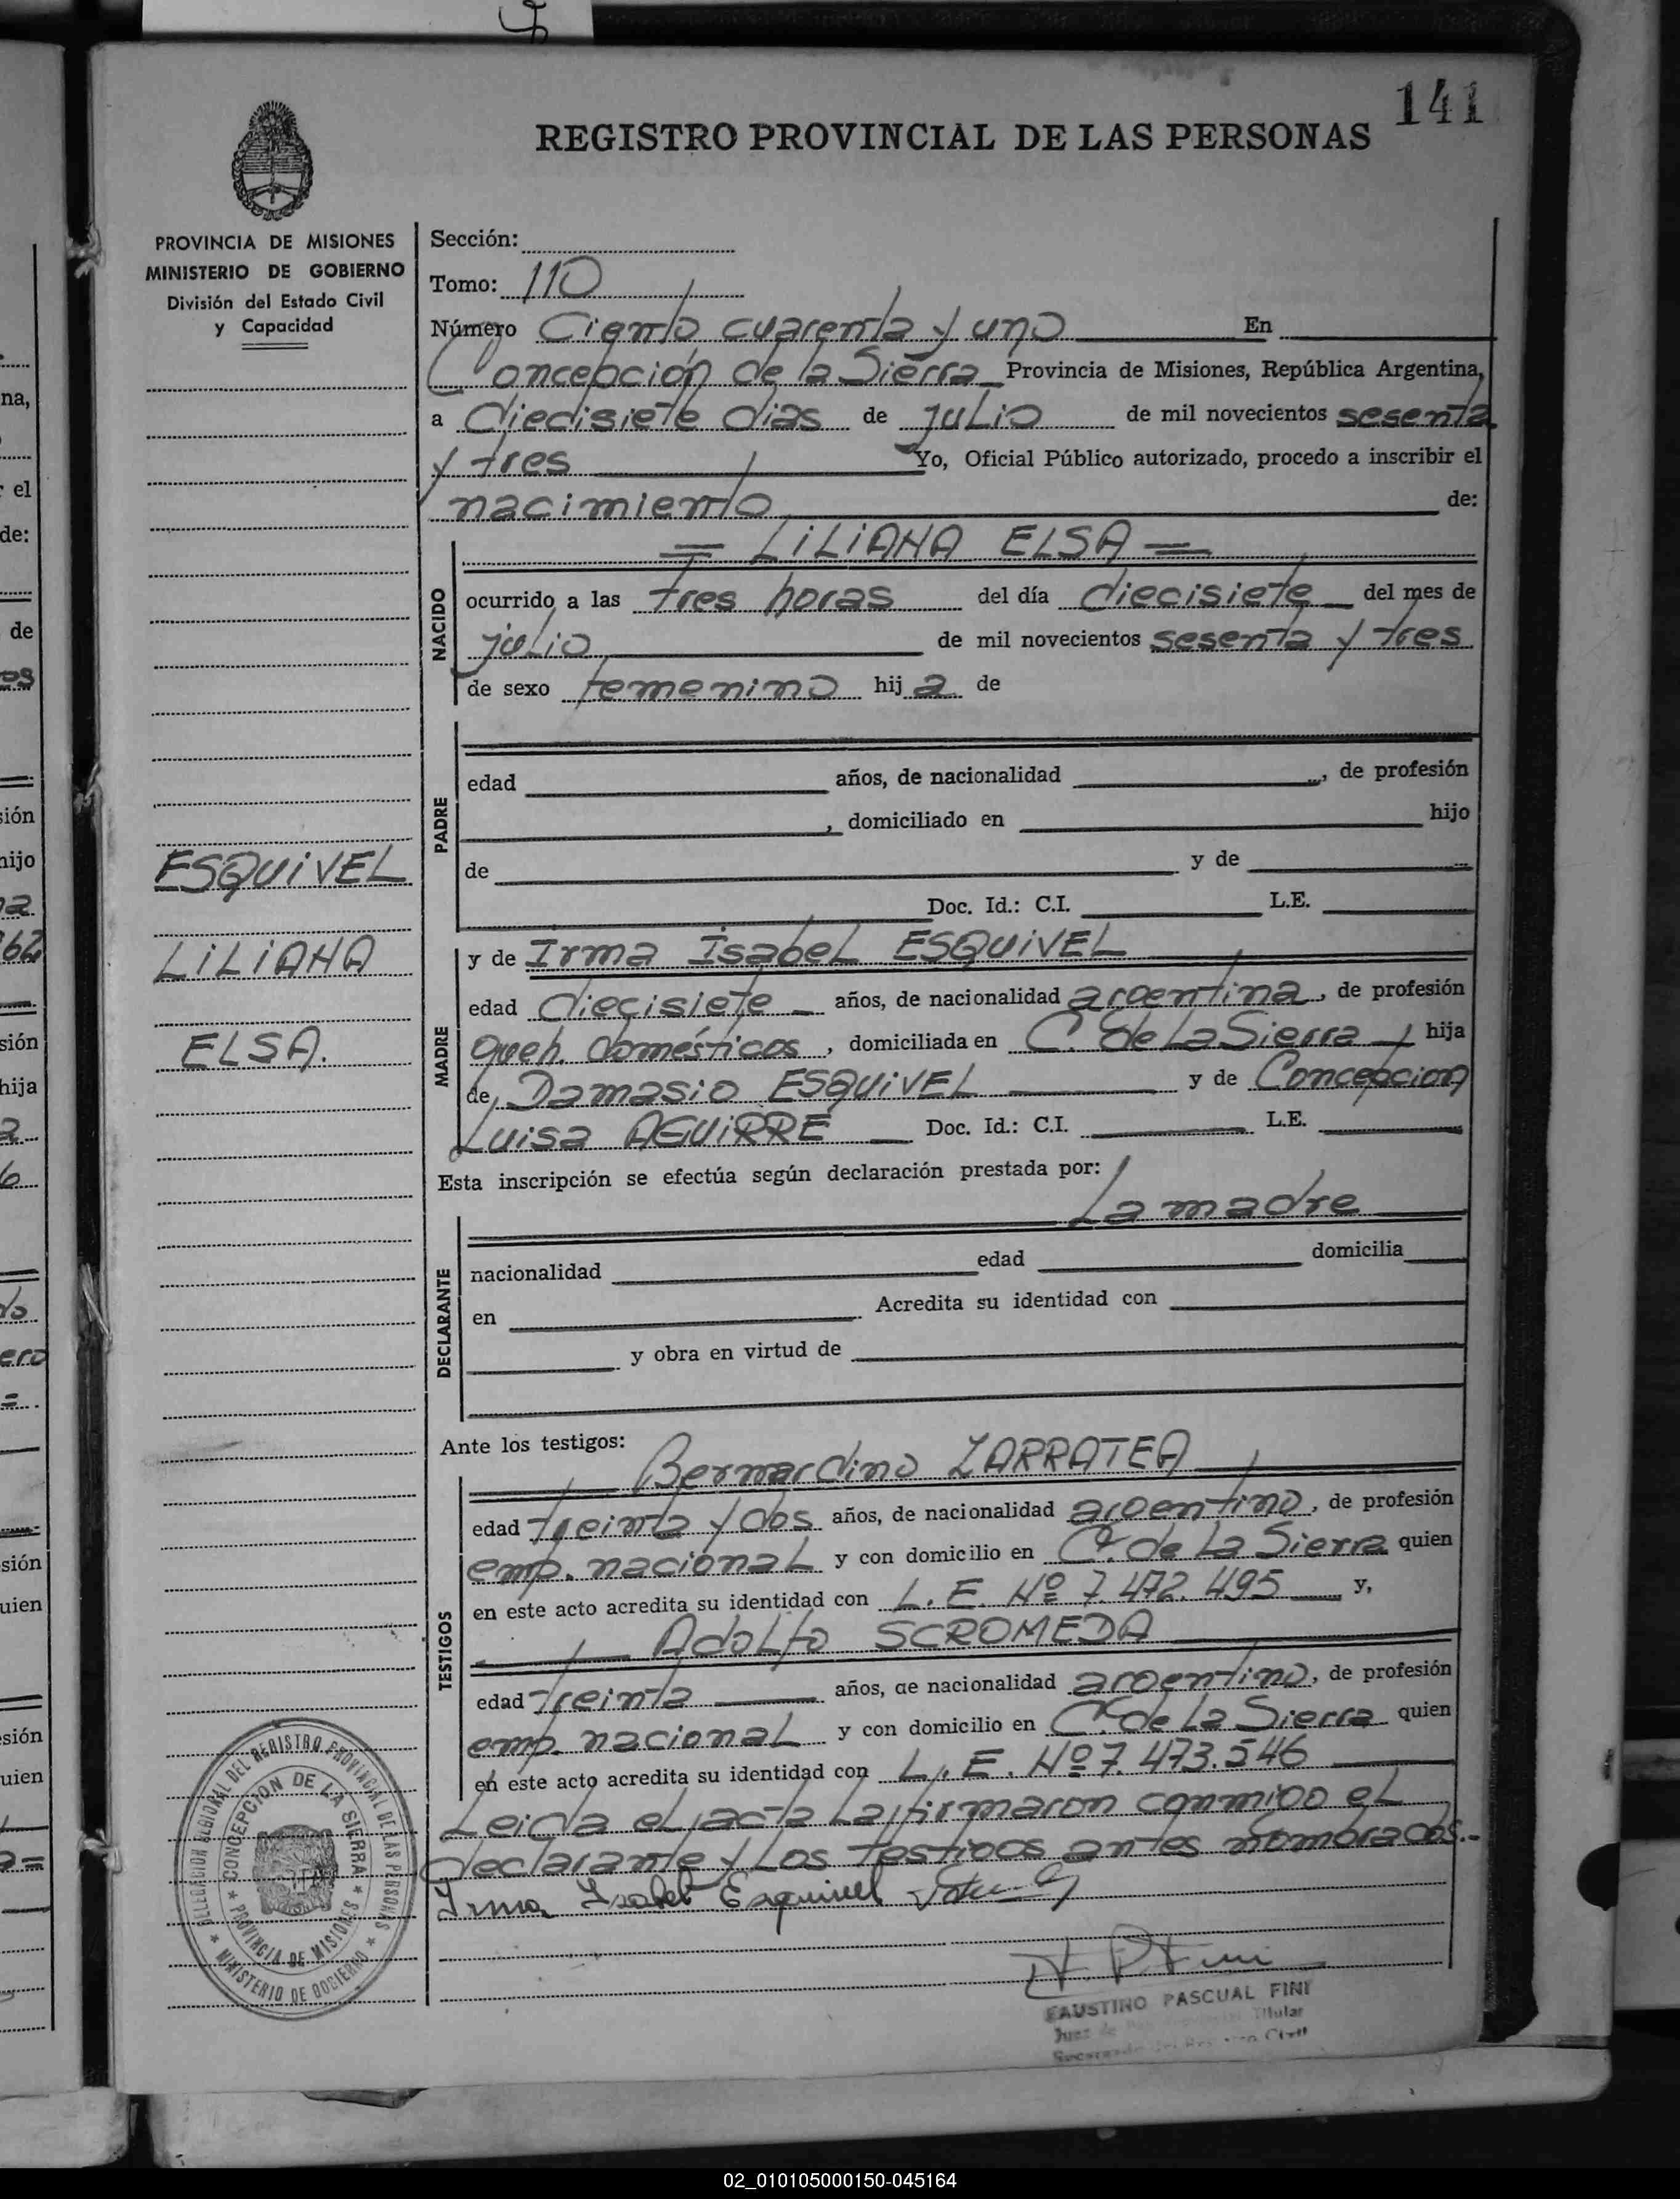 141
REGISTRO PROVINCIAL DE LAS PERSONAS
PROVINCIA DE MISIONES
MINISTERIO DE GOBIERNO
División del Estado Civil
y Capacidad
Sección:
Tomo: 110
Número Ciento cuarenta y uno En
Concepción de la Sierra Provincia de Misiones, República Argentina,
a diecisiete dias de julio de mil novecientos sesenta
y tres Yo, Oficial Público autorizado, procedo a inscribir el
nacimiento de:
= LILIANA ELSA =
NACIDO
ocurrido a las tres horas del día diecisiete del mes de
julio de mil novecientos sesenta y tres
de sexo femenino hija de
PADRE
edad años, de nacionalidad , de profesión
, domiciliado en hijo
de y de
Doc. Id.: C.I. L.E.
ESQUIVEL
LILIANA
ELSA.
MADRE
y de Irma Isabel ESQUIVEL
edad diecisiete años, de nacionalidad argentina, de profesión
queh. domésticos, domiciliada en C. de La Sierra hija
de Damasio ESQUIVEL y de Concepcion
Luisa AGUIRRE Doc. Id.: C.I. L.E.
Esta inscripción se efectúa según declaración prestada por:
La madre
DECLARANTE
nacionalidad edad domicilia
en Acredita su identidad con
y obra en virtud de
Ante los testigos:
Bernardino ZARRATEA
TESTIGOS
edad treinta y dos años, de nacionalidad argentino, de profesión
emp. nacional y con domicilio en C. de La Sierra quien
en este acto acredita su identidad con L. E. Nº 7.472.495 y,
Adolfo SCROMEDA
edad treinta años, de nacionalidad argentino, de profesión
emp. nacional y con domicilio en C. de La Sierra quien
en este acto acredita su identidad con L. E. Nº 7.473.546
Leida el acta la firmaron conmigo el
declarante y los testigos antes nombrados.-
Irma Isabel Esquivel
DELEGACION SECCIONAL DEL REGISTRO PROVINCIAL DE LAS PERSONAS
CONCEPCION DE LA SIERRA
PROVINCIA DE MISIONES
MINISTERIO DE GOBIERNO
FAUSTINO PASCUAL FINI
Juez de Titular
Civil
02_010105000150-045164